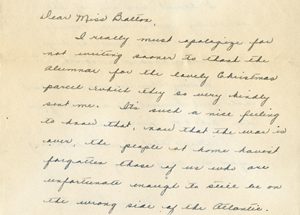 Dear Miss Bolton,
I really must apologize for
not writing sooner to thank the
Alumnae for the lovely Christmas
parcel which they so very kindly
sent me. It's such a nice feeling
to know that, now that the war is
over, the people at home havent
forgotten those of us who are
unfortunate enough to still be on
the wrong side of the Atlantic.